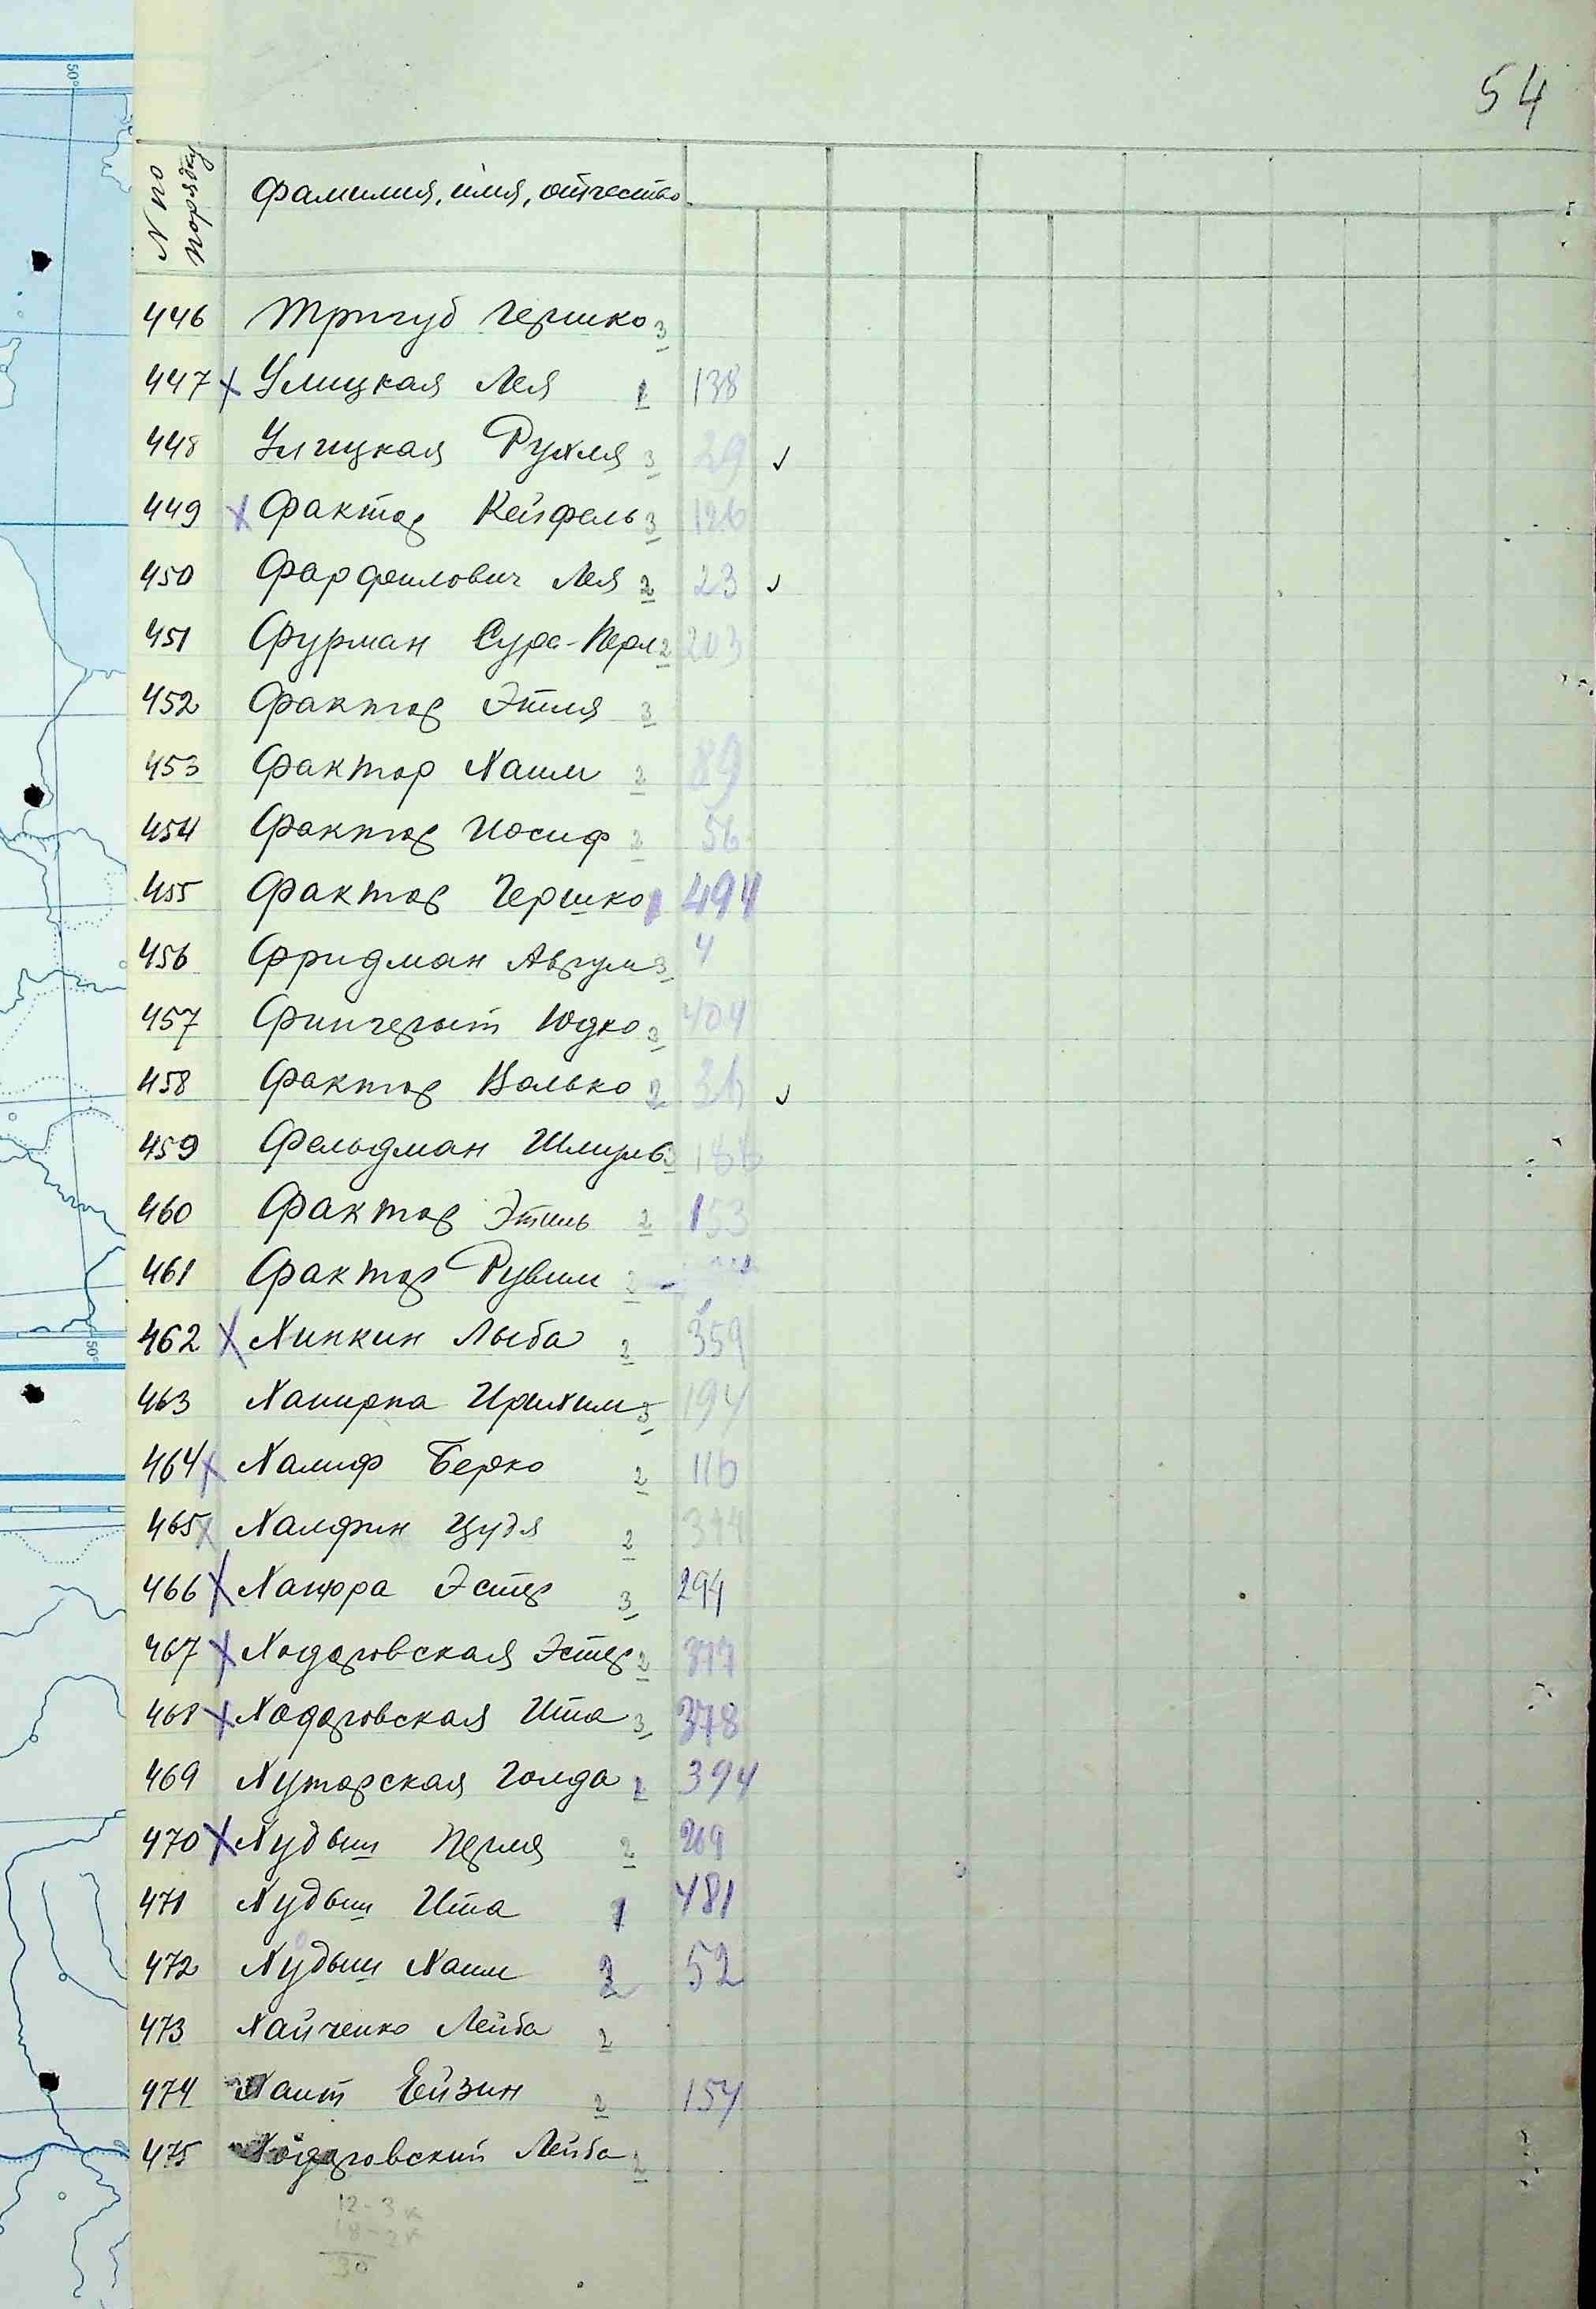 54
N по порядку
Фамилия, имя, отчество
446 Тригуб Гершко 3
447 х Улицкая Лея 1 138
448 Улицкая Рухля 3 29 ✓
449 х Фактор Кейфель 3 126
450 Фарфилович Лея 2 23 ✓
451 Фурман Сура-Перл 2 203
452 Фактор Этля 3
453 Фактор Хаим 2 89
454 Фактор Иосиф 2 56
455 Фактор Гершко 1 494
456 Фридман Аврум 3 4
457 Юдко 3 404
458 Фактор Волько 2 ✓
459 Фельдман Шмуль 3
460 Фактор Этиль 2 153
461 Фактор Рувим 2
462 х Хинкин Лыба 2 359
463 Хапирпа 3 194
464 х Халиф Берко 2 116
465 х Халфин Цудя 2 344
466 х Хацюра Эстер 3 294
467 х Ходоровская Эстер 2 377
468 х Ходоровская Ита 3 378
469 Хуторская Голда 2 394
470 х Худыш Перля 2 269
471 Худыш Ита 1 481
472 Худыш Хаим 2 52
473 Хайченко Лейба 2
474 Хаит Ейзин 2 154
475 Ходоровский Лейба 2
12-3к
18-2к
30